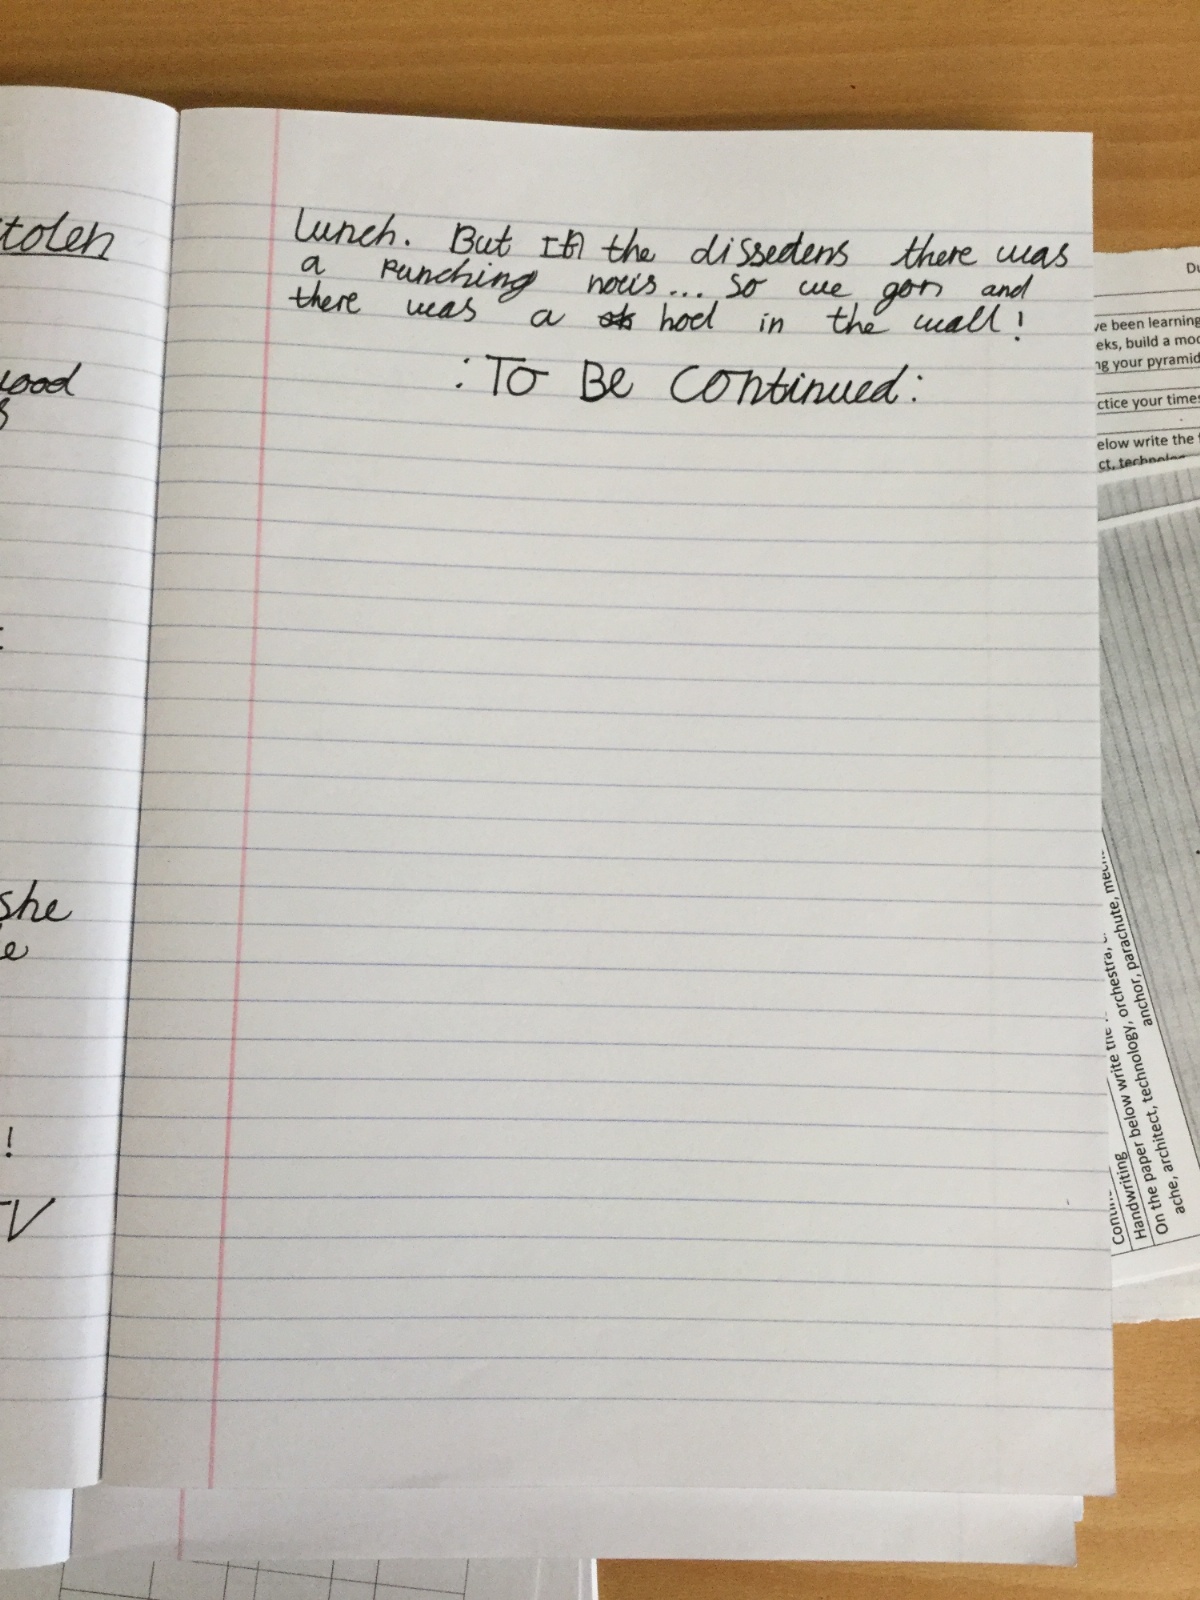 tolen
wood
she
e
!
TV
Lunch. But In the dissedens there was
a Punching nouis... So we gon and
there was a hoel in the wall!
:To Be Continued:
Du
ve been learning
eks, build a mod
ng your pyramid
ctice your times
elow write the
ct, technolog
Handwriting
On the paper below write the
technology, orchestra,
ache, architect,
anchor, parachute, mech